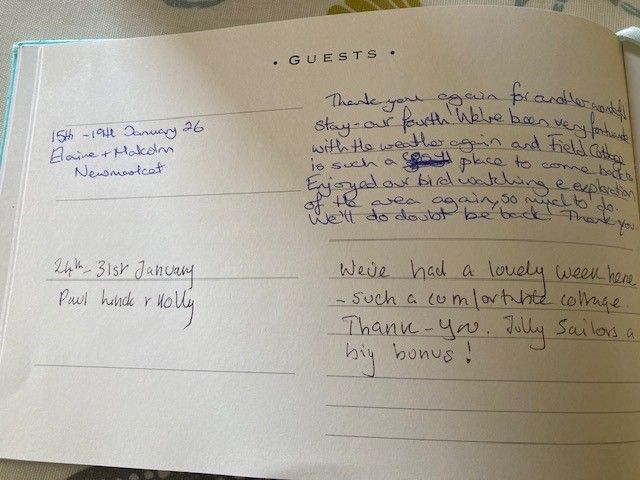 • GUESTS •
15th - 19th January 26
Elaine + Malcolm
Newmarket
Thank you again for another wonderful
stay - our fourth. We've been very fortunate
with the weather again and Field Cottage
is such a place to come back to
Enjoyed our birdwatching & exploration
of the area again, so much to do.
We'll do doubt be back! Thank you
24th - 31st January
Paul & Holly
We've had a lovely week here
- such a comfortable cottage.
Thank-you. Jolly Sailors a
big bonus!